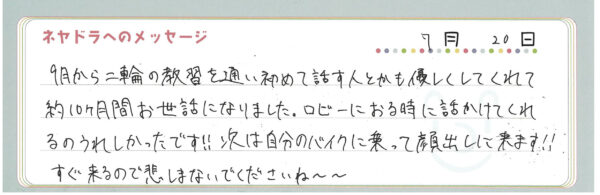 ネヤドラへのメッセージ
7月 20日
9月から二輪の教習を通い初めて話す人とかも優しくしてくれて
約10ヶ月間お世話になりました。ロビーにおる時に話かけてくれ
るのうれしかったです!! 次は自分のバイクに乗って顔出しに来ます!!
すぐ来るので悲しまないでくださいね〜〜